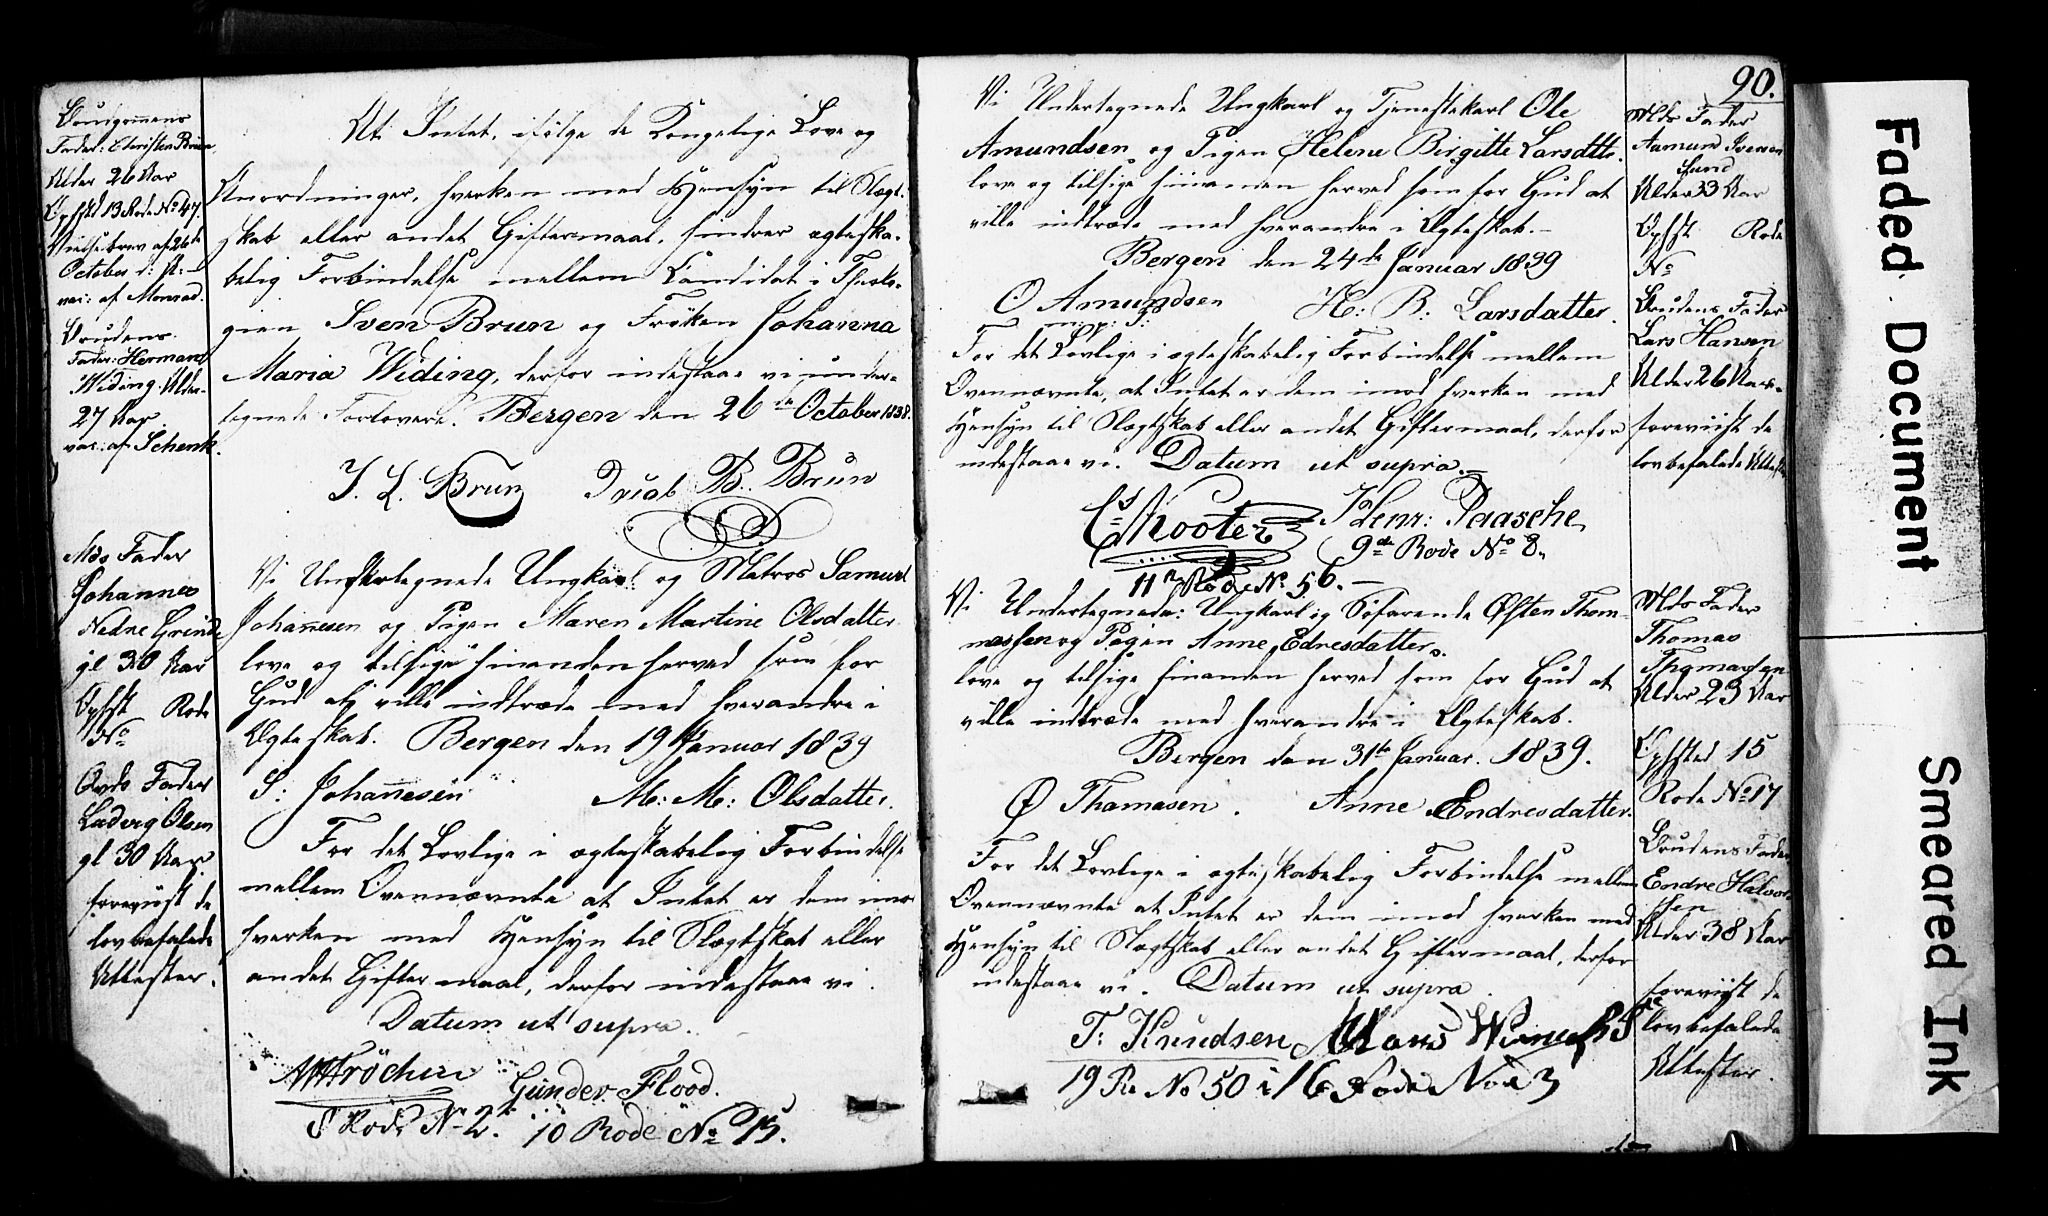 Brudgommens
Fader: Christen Brun
Alder 26 Aar
Opholdst 13 Rode No 47.
Vielsebrev af 26de
October d: A:
vac: af Monrad.
Brudens
Fader: Herman
Widing. Alder
27 Aar
vac: af Schenk.
At Intet, ifølge de Kongelige Love og
Anordninger, hverken med Hensyn til Slægt-
skab eller andet Giftermaal, hindrer ægteska-
belig Forbindelse mellem Candidat i Theolo-
gien Sven Brun og Frøken Johanna
Maria Widing, derfor indestaae vi under-
tegnede Forlovere. Bergen den 26de October 1838.
J. L. Brun B. Brun
Mds Fader
Johannes
Nedre Grinde
gl 30 Aar
Ophst Rode
No
Qvds Fader
Ludvig Olsen
gl 30 Aar
foreviist de
lovbefalede
Attester.
Vi Undertegnede Ungkarl og Matros Samuel
Johannesen og Pigen Maren Martine Olsdatter
love og tilsige hinanden herved som for
Gud at ville indtræde med hverandre i
Ægteskab. Bergen den 19 Januar 1839
S: Johannesen M: M: Olsdatter.
For det Lovlige i ægteskabelig Forbindelse
mellem Ovennævnte at Intet er dem imod
hverken med Hensyn til Slægtskab eller
andet Giftermaal, derfor indestaae vi.
Datum ut supra.
Gunder Flood.
8 Rode No 2. 10 Rode No 15.
90.
Vi Undertegnede Ungkarl og Tjenestekarl Ole
Amundsen og Pigen Helene Birgitte Larsdttr.
love og tilsige hinanden herved som for Gud at
ville indtræde med hverandre i Ægteskab.
Bergen den 24de Januar 1839
O Amundsen H: B: Larsdatter.
m. p: P:
For det Lovlige i ægteskabelig Forbindelse mellem
Ovennævnte, at Intet er dem imod hverken med
Hensyn til Slægtskab eller andet Giftermaal, derfor
indestaae vi. Datum ut supra.
Henr: Paasche
9de Rode No 8.
11 Rode No 56.
Mds Fader
Aamund Iversen
Sund
Alder 33 Aar
Ophst Rode
No
Brudens Fader
Lars Hansen
Alder 26 Aar
foreviist de
lovbefalede Attester
Vi Undertegnede: Ungkarl og Søfarende Østen Thom-
nessen og Pigen Anne Edresdatter
love og tilsige hinanden herved som for Gud at
ville indtræde med hverandre i Ægteskab.
Bergen den 31te Januar. 1839.
Ø Thamasen. Anne Endresdatter.
For det Lovlige i ægteskabelig Forbindelse mellem
Ovennævnte at Intet er dem imod hverken med
Hensyn til Slægtskab eller andet Giftermaal, derfor
indestaae vi. Datum ut supra.
T: Knudsen Hans
19 No 50 i 16 Rode No 3
Mds Fader
Thomas
Thomassen
Alder 23 Aar
Ophsted 15
Rode No 17
Brudens Fader
Endre Halvor-
sen
Alder 38 Aar
foreviist de
lovbefalede
Attester.
Faded Document
Smeared Ink